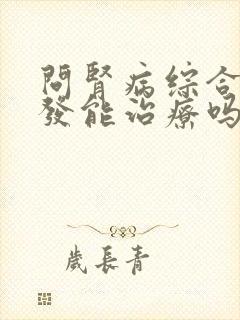 問腎病綜合
發能治療嗎
歲長青